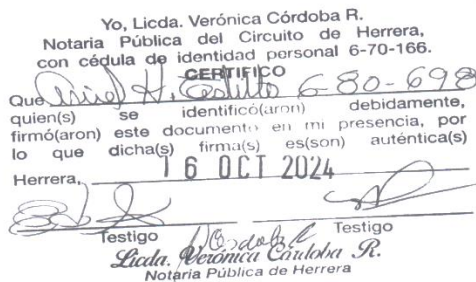 Yo, Licda. Verónica Córdoba R.
Notaria Pública del Circuito de Herrera,
con cédula de identidad personal 6-70-166.
CERTIFICO
Que H. Castillo 6-80-698
quien(s) se identificó(aron) debidamente,
firmó(aron) este documento en mi presencia, por
lo que dicha(s) firma(s) es(son) auténtica(s)
Herrera, 16 OCT 2024
Testigo Testigo
Licda. Verónica Córdoba R.
Notaria Pública de Herrera